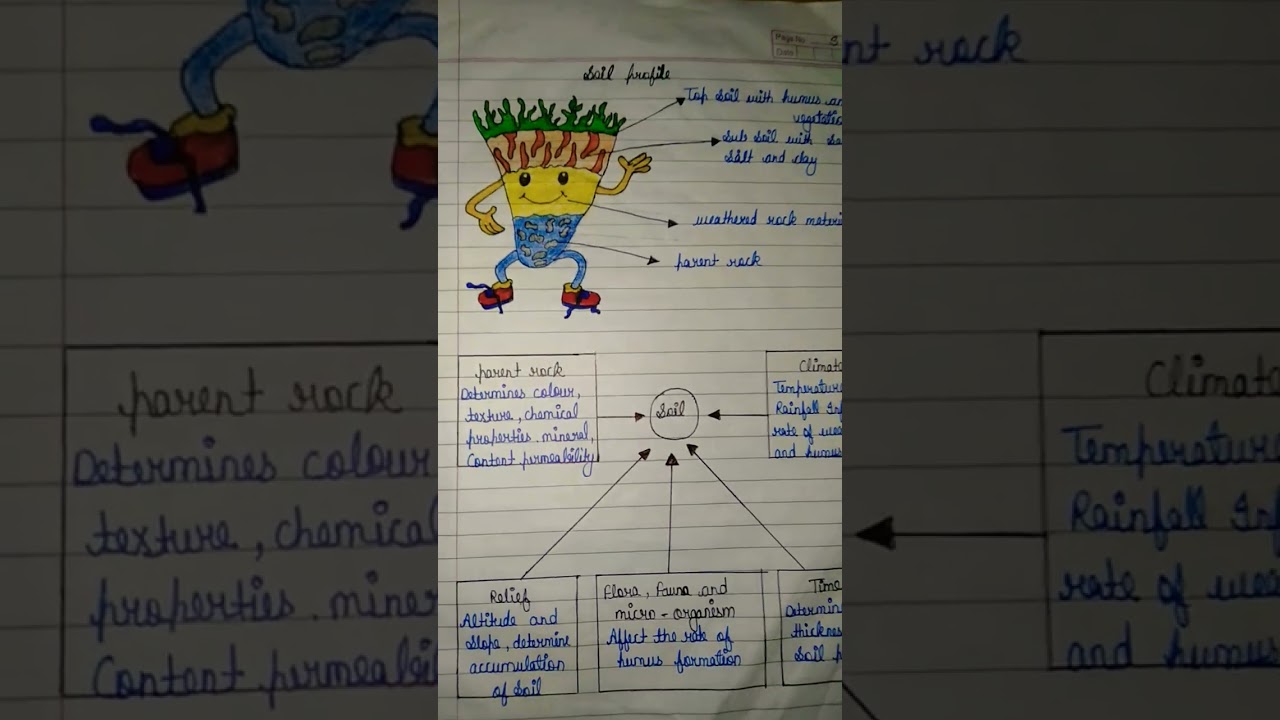 Page No. 5
Date
Soil profile
Top soil with humus an
vegetatio
Sub soil with sa
silt and clay
weathered rock materi
parent rock
parent rock
Determines colour,
texture, chemical
properties. mineral,
Content permeability
Soil
Climate
Temperature
Rainfall Inf
rate of wea
and humus
Relief
Altitude and
Slope, determine
accumulation
of Soil
Flora, Fauna and
micro-organism
Affect the rate of
humus formation
Time
Determin
thicknes
Soil p
nt rock
parent rock
Determines colour
texture, chemical
properties. miner
Content permeabili
Climate
Temperature
Rainfall Inf
rate of wea
and humus